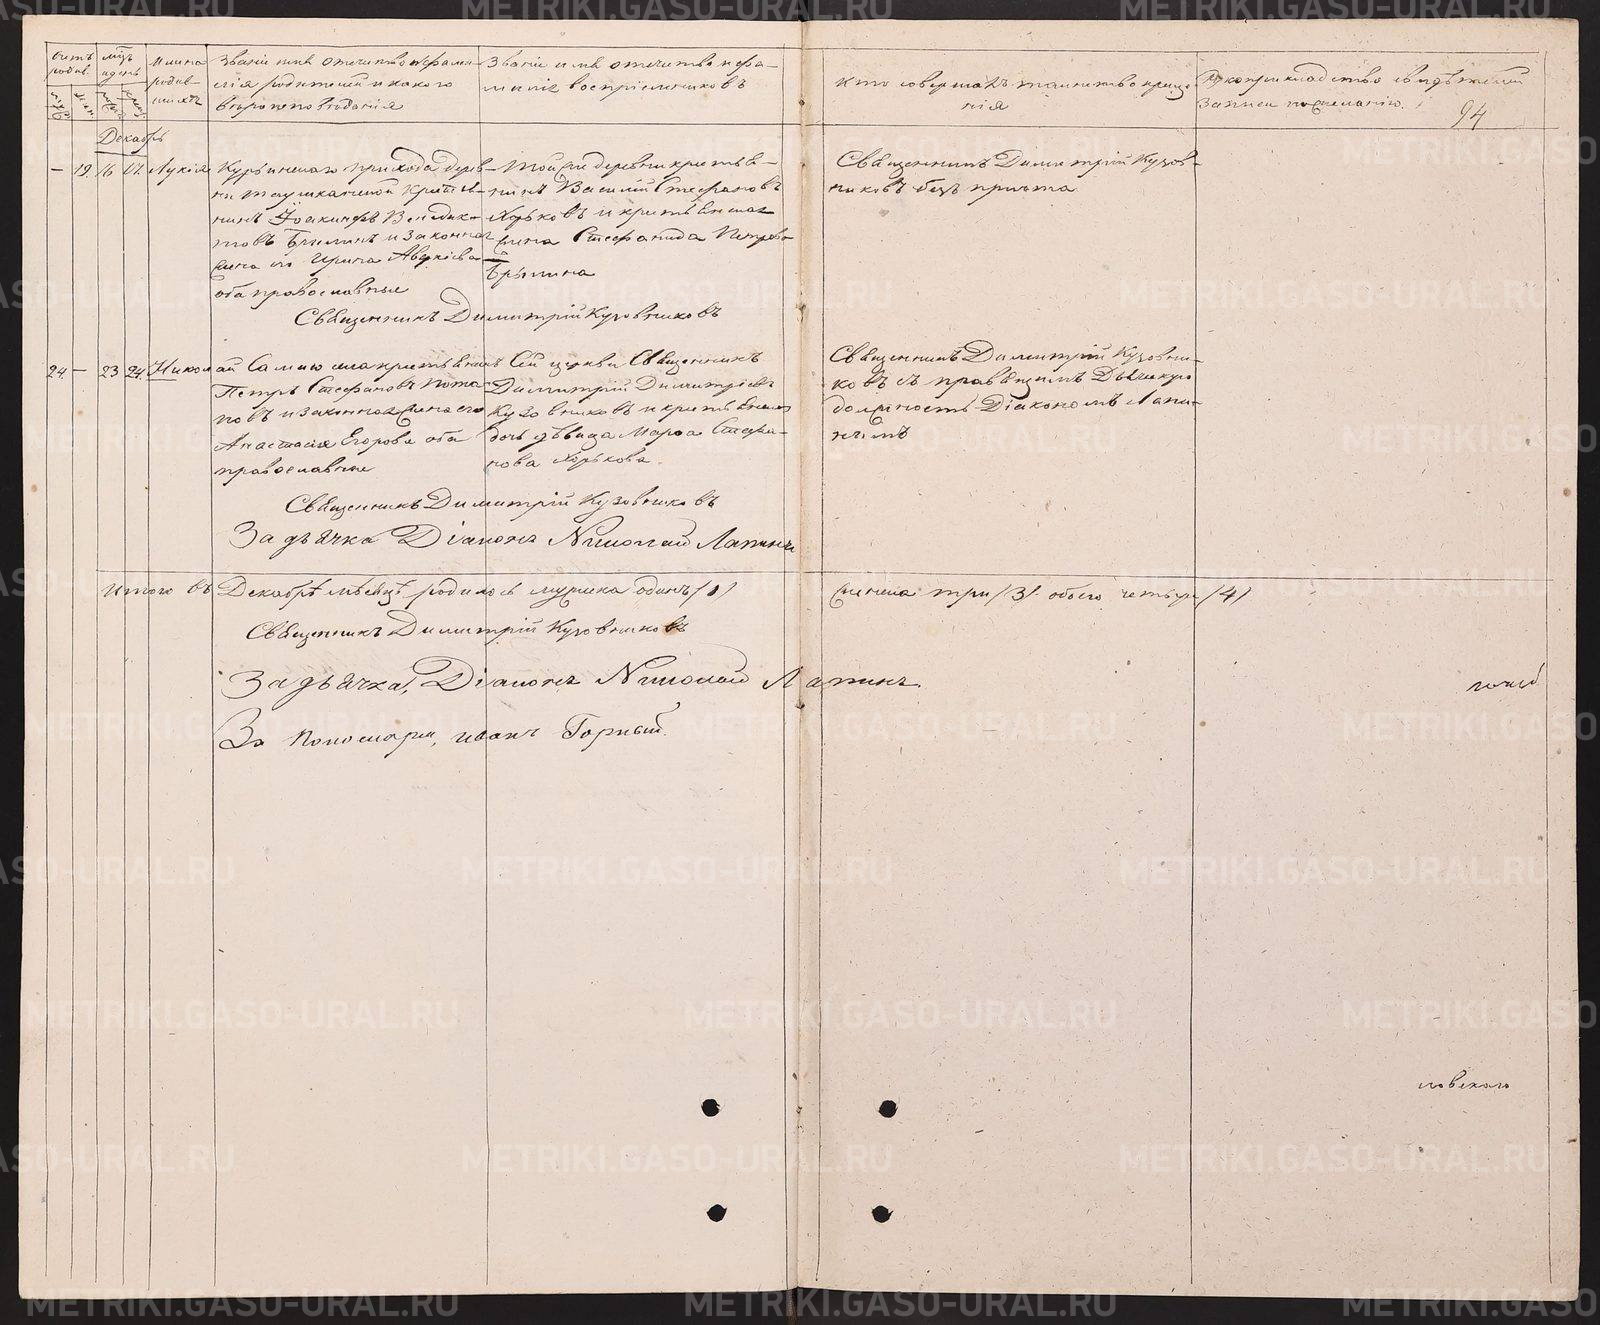 Счетъ родив.
мѣс. и день
Имена родив-
шихся
Званіе имя отечество и фами-
лія родителей и какого
вѣроисповѣданія
Званіе имя отчество и фа-
миліе воспріемниковъ
Кто совершалъ таинство креще-
нія
Рукоприкладство свидѣтелей
записи по желанію.
94
Декабрь
— 19. 16 17. Лукія
Куръинскаго прихода дерев-
ни крестья-
нинъ Іоакимъ
и законная
жена его Ирина
оба православные
Той же деревни крестья-
нинъ Василій Стефановъ
Хорьковъ и крестьянская
жена Стефанида Петрова
Священникъ Димитрій Кузов-
никовъ безъ причта
Священникъ Димитрій Кузовниковъ
24. — 23 24. Николай
Петръ Стефановъ Пота-
повъ и законная жена его
Анастасія Егорова оба
православные
Сей церкви Священникъ
Димитрій Димитріевъ
Кузовниковъ и крестьянская
дочь дѣвица Марѳа Стефа-
нова Хорькова.
Священникъ Димитрій Кузовни-
ковъ съ правящимъ Дьячкую
должность Діакономъ Лапи-
нымъ
Священникъ Димитрій Кузовниковъ
За дьячка Діаконъ Николай Лапинъ
Итого въ Декабрѣ мѣсяцѣ родилось мужеска одинъ /1/ женска три /3/. обоего четыре /4/
Священникъ Димитрій Кузовниковъ
За дьячка, Діаконъ Николай Лапинъ.
За Пономаря, Иванъ Горный.
ловскаго
METRIKI.GASO-URAL.RU